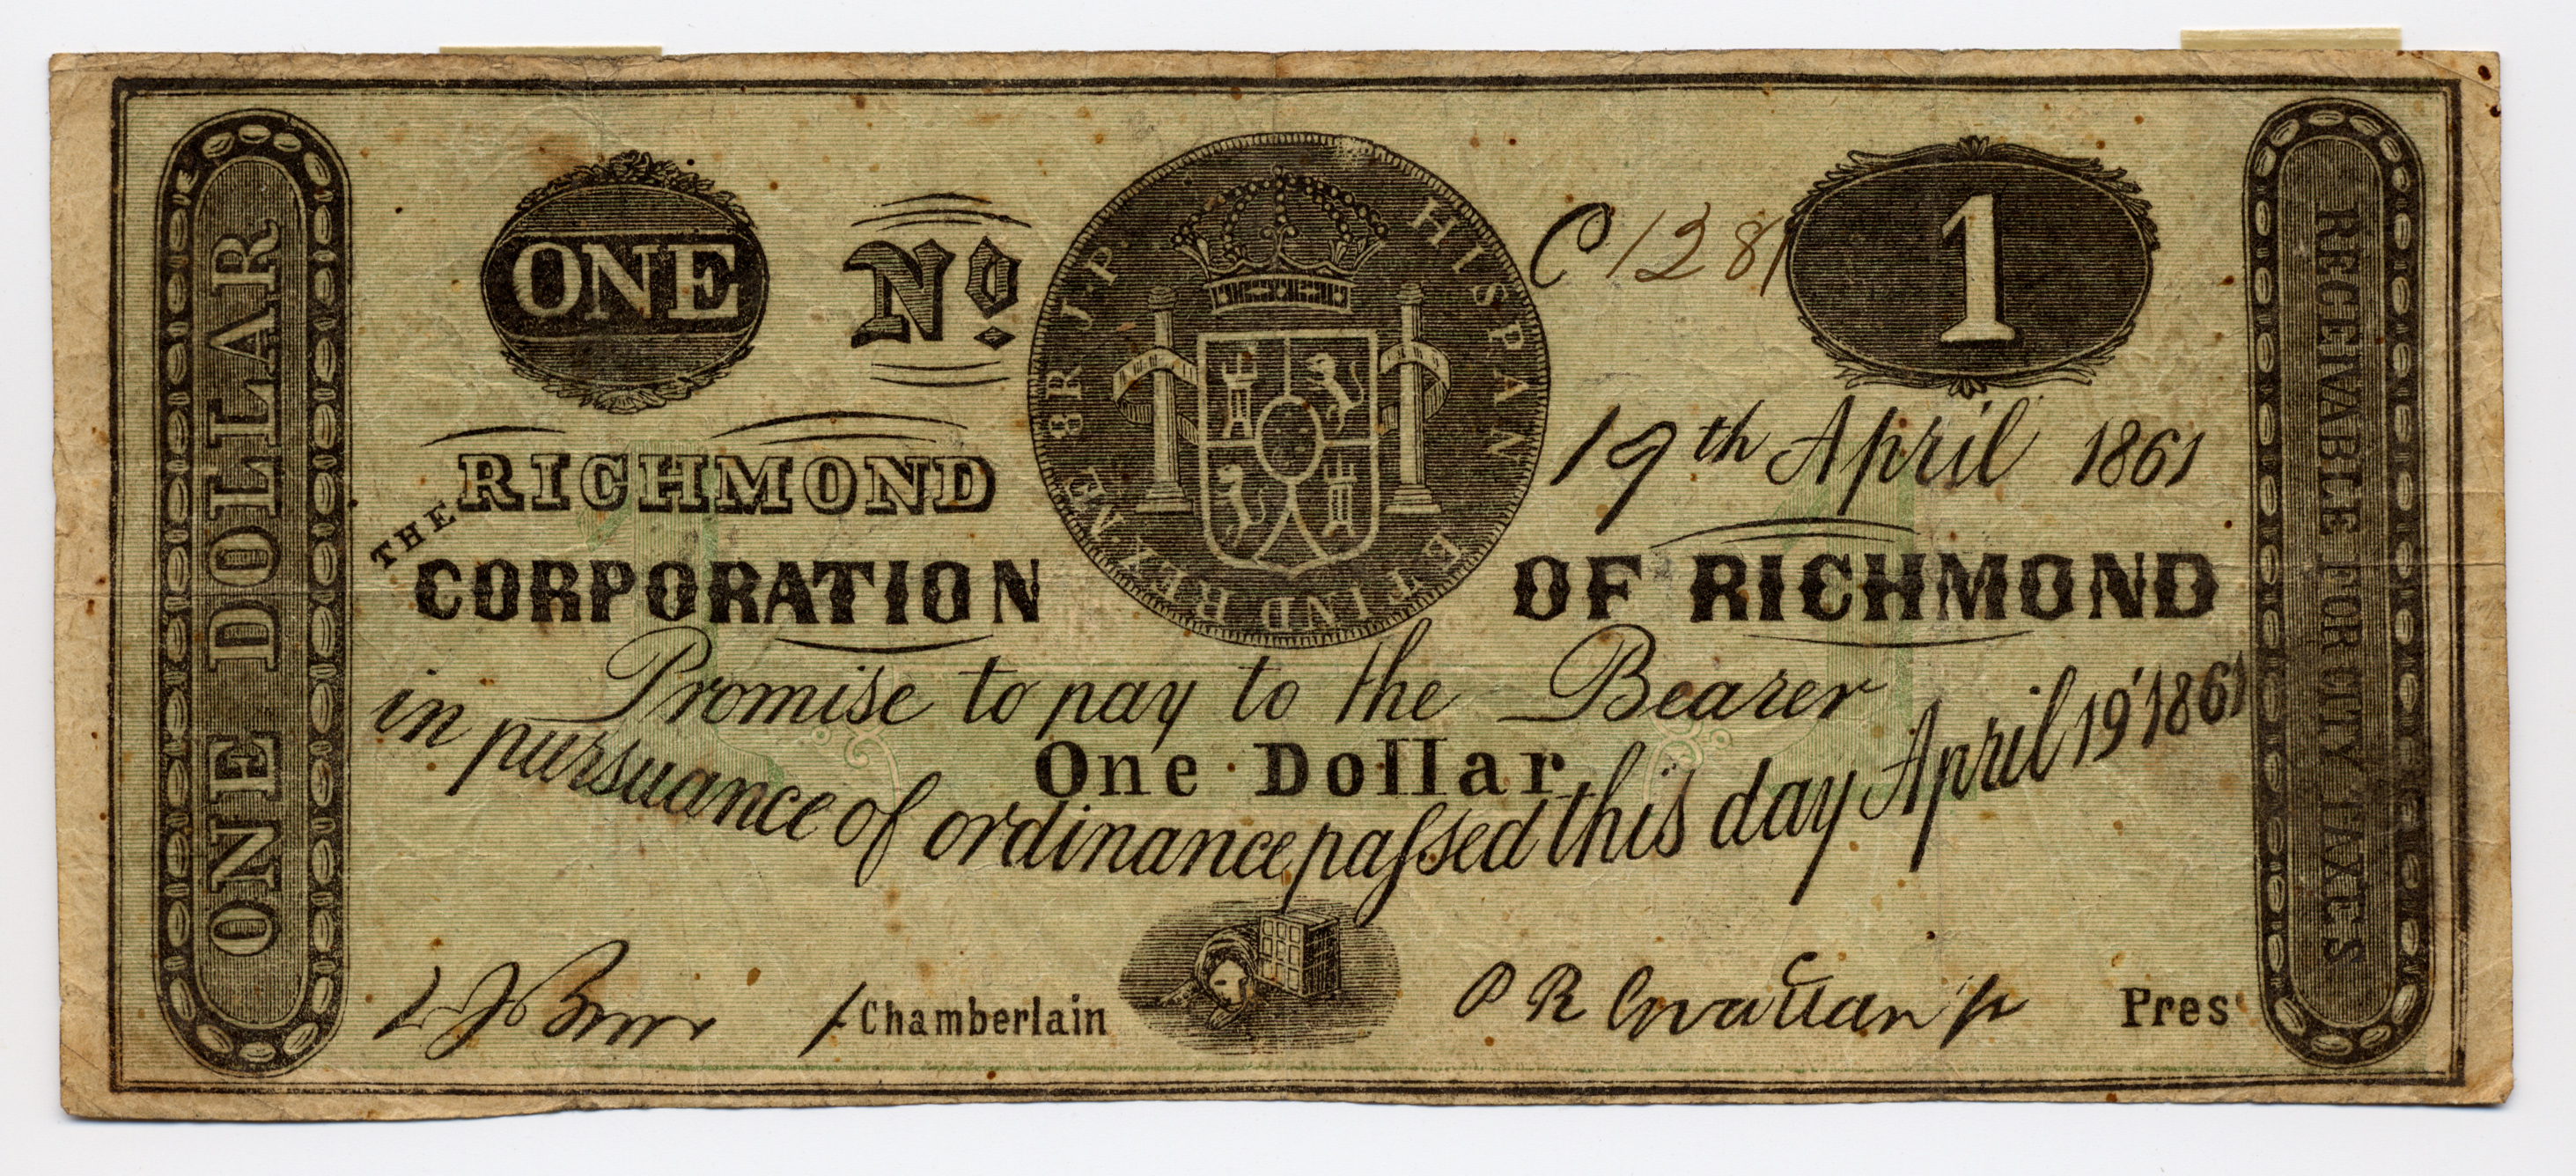 ONE DOLLAR
ONE
Nº.
C 1281
1
HISPAN ET IND REX. NE 8R J.P.
19th April 1861
THE RICHMOND
CORPORATION OF RICHMOND
Promise to pay to the Bearer
One Dollar
in pursuance of ordinance paſsed this day April 19' 1861
Chamberlain
Pres
RECEIVABLE FOR CITY TAXES